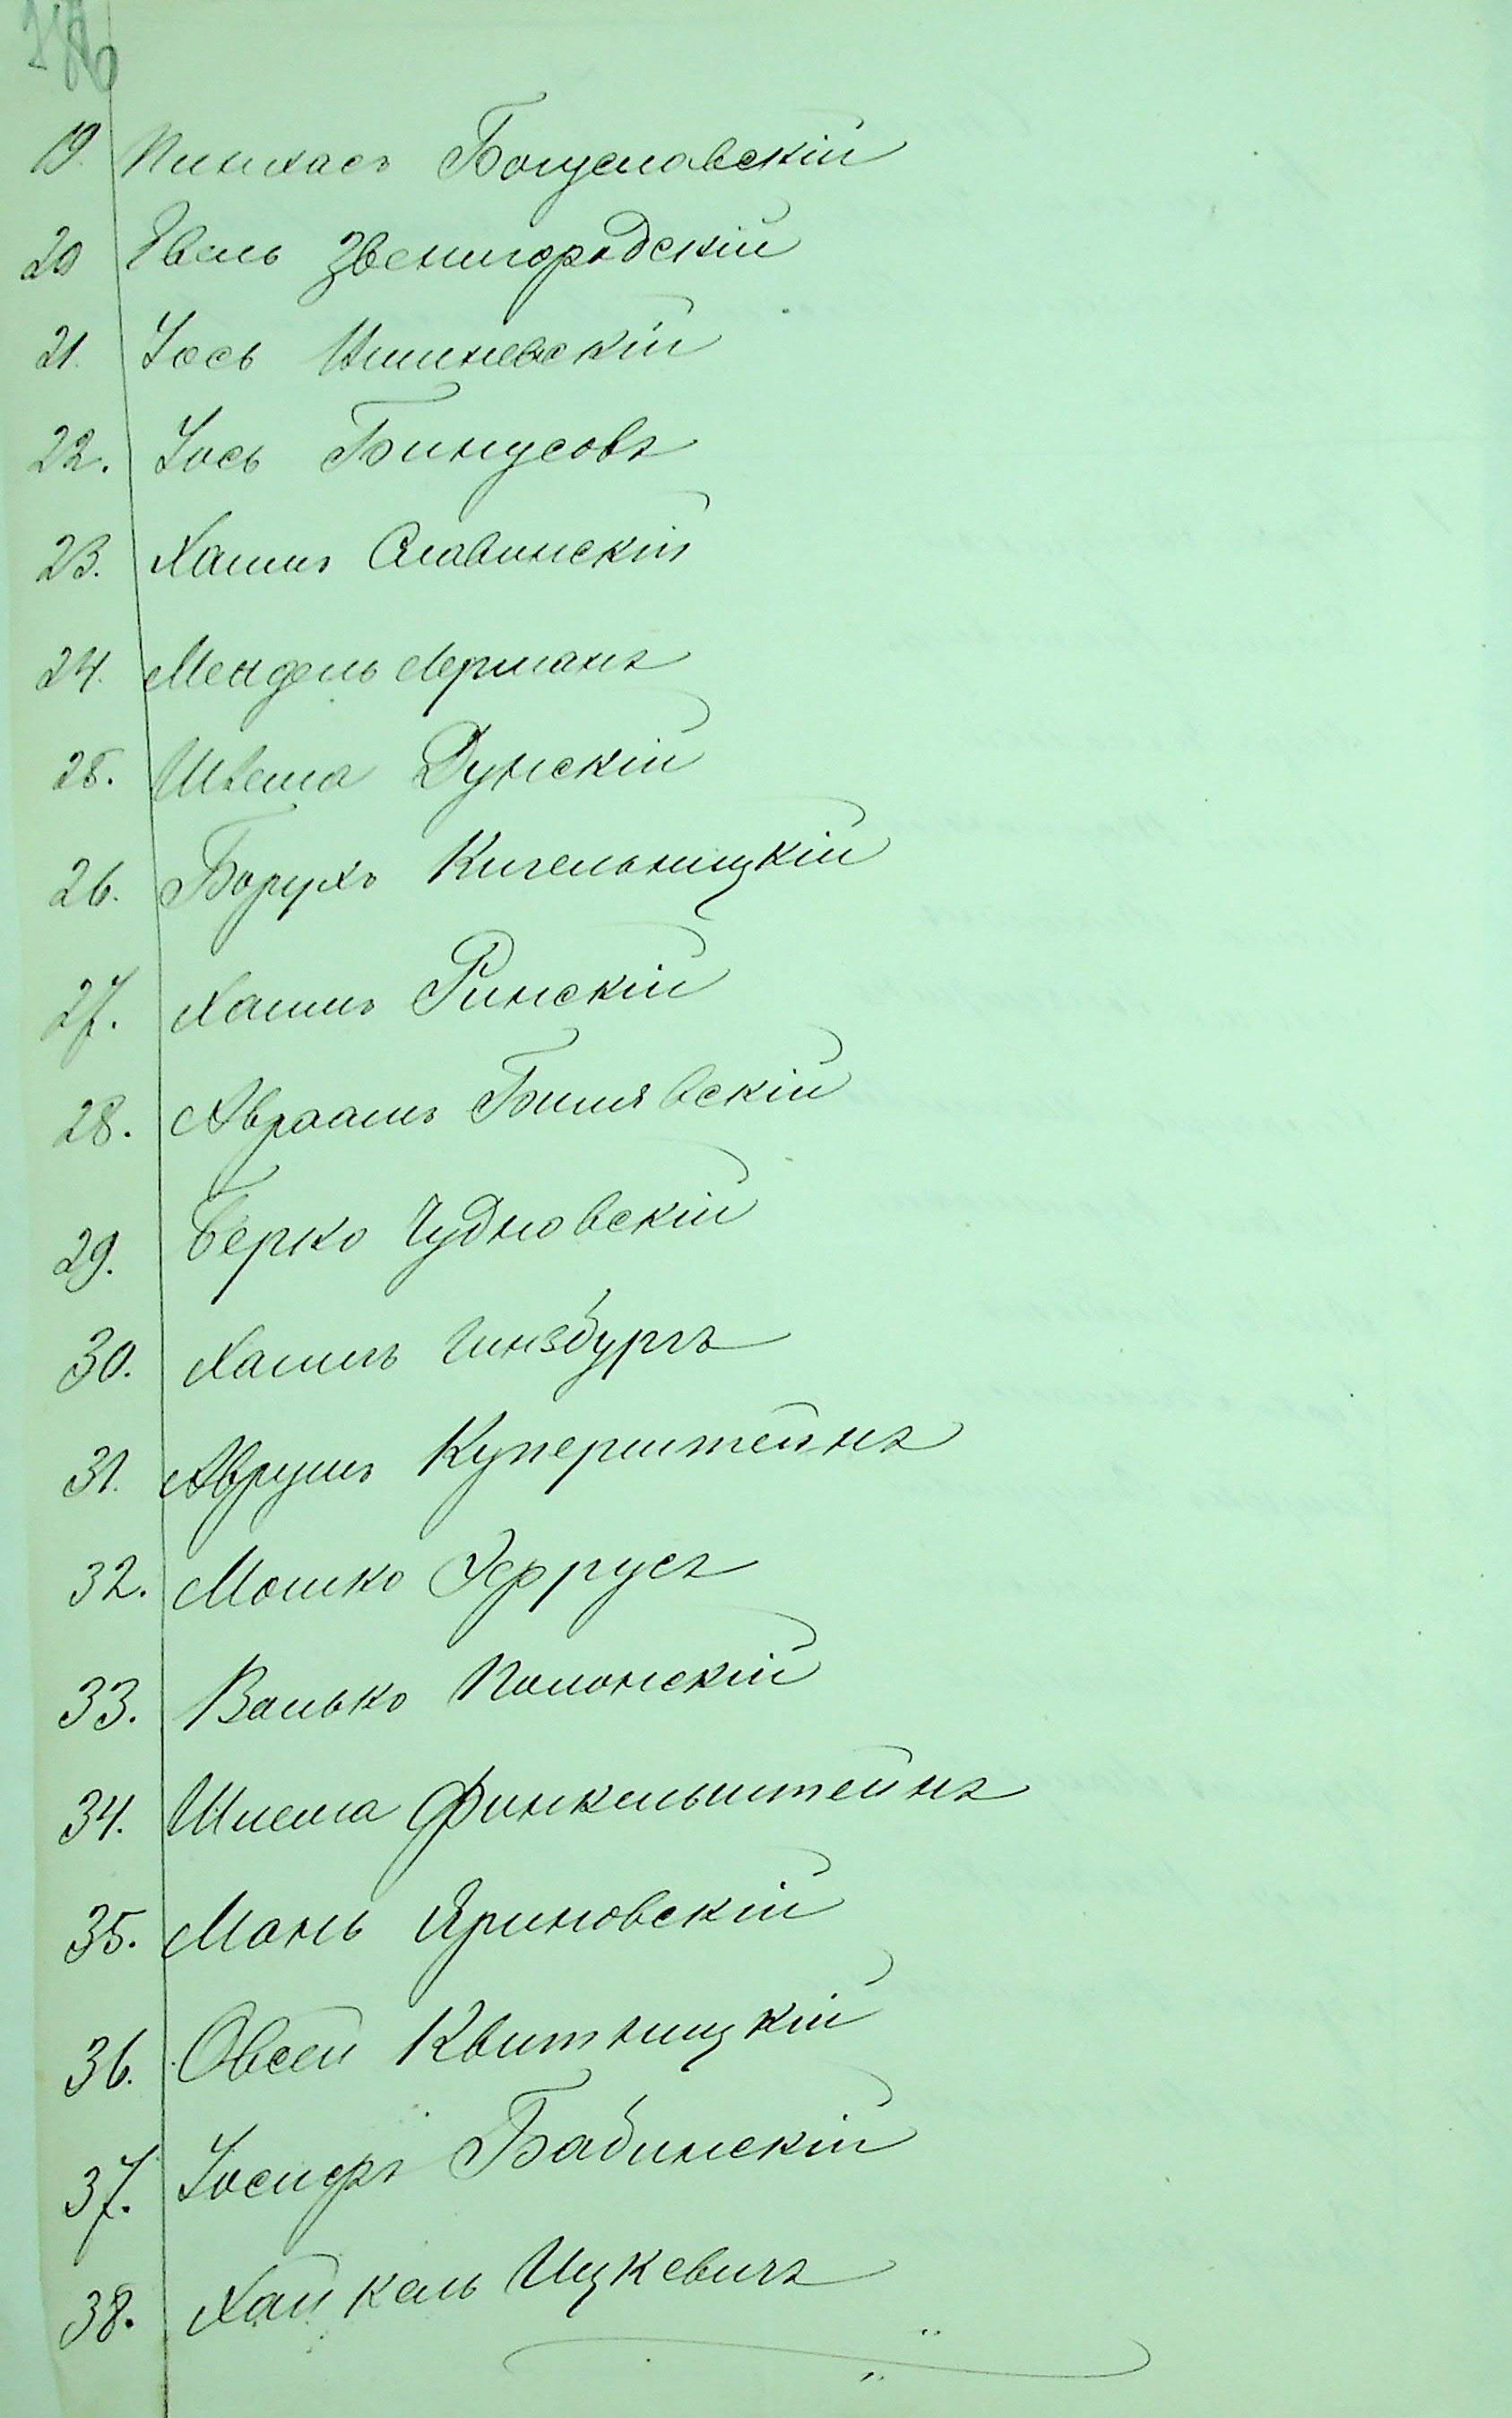 19. Пинхасъ Богуславскій
20 Евель Звенигородскій
21. Іось
22. Іось Бинусовъ
23. Хаимъ Славинскій
24. Мендель Лерманъ
25. Шлема Дунскій
26. Борухъ Кигельницкій
27. Хаимъ Ринскій
28. Авраамъ Билявскій
29. Берко Чудновскій
30. Хаимъ Гинзбургъ
31. Аврумъ Куперштейнъ
32. Мошко
33. Волько Полонскій
34. Шлема Финкельштейнъ
35. Мань Яриновскій
36. Овсей Квитницкій
37. Іосифъ Бабинскій
38. Хайкель Ицкевичъ